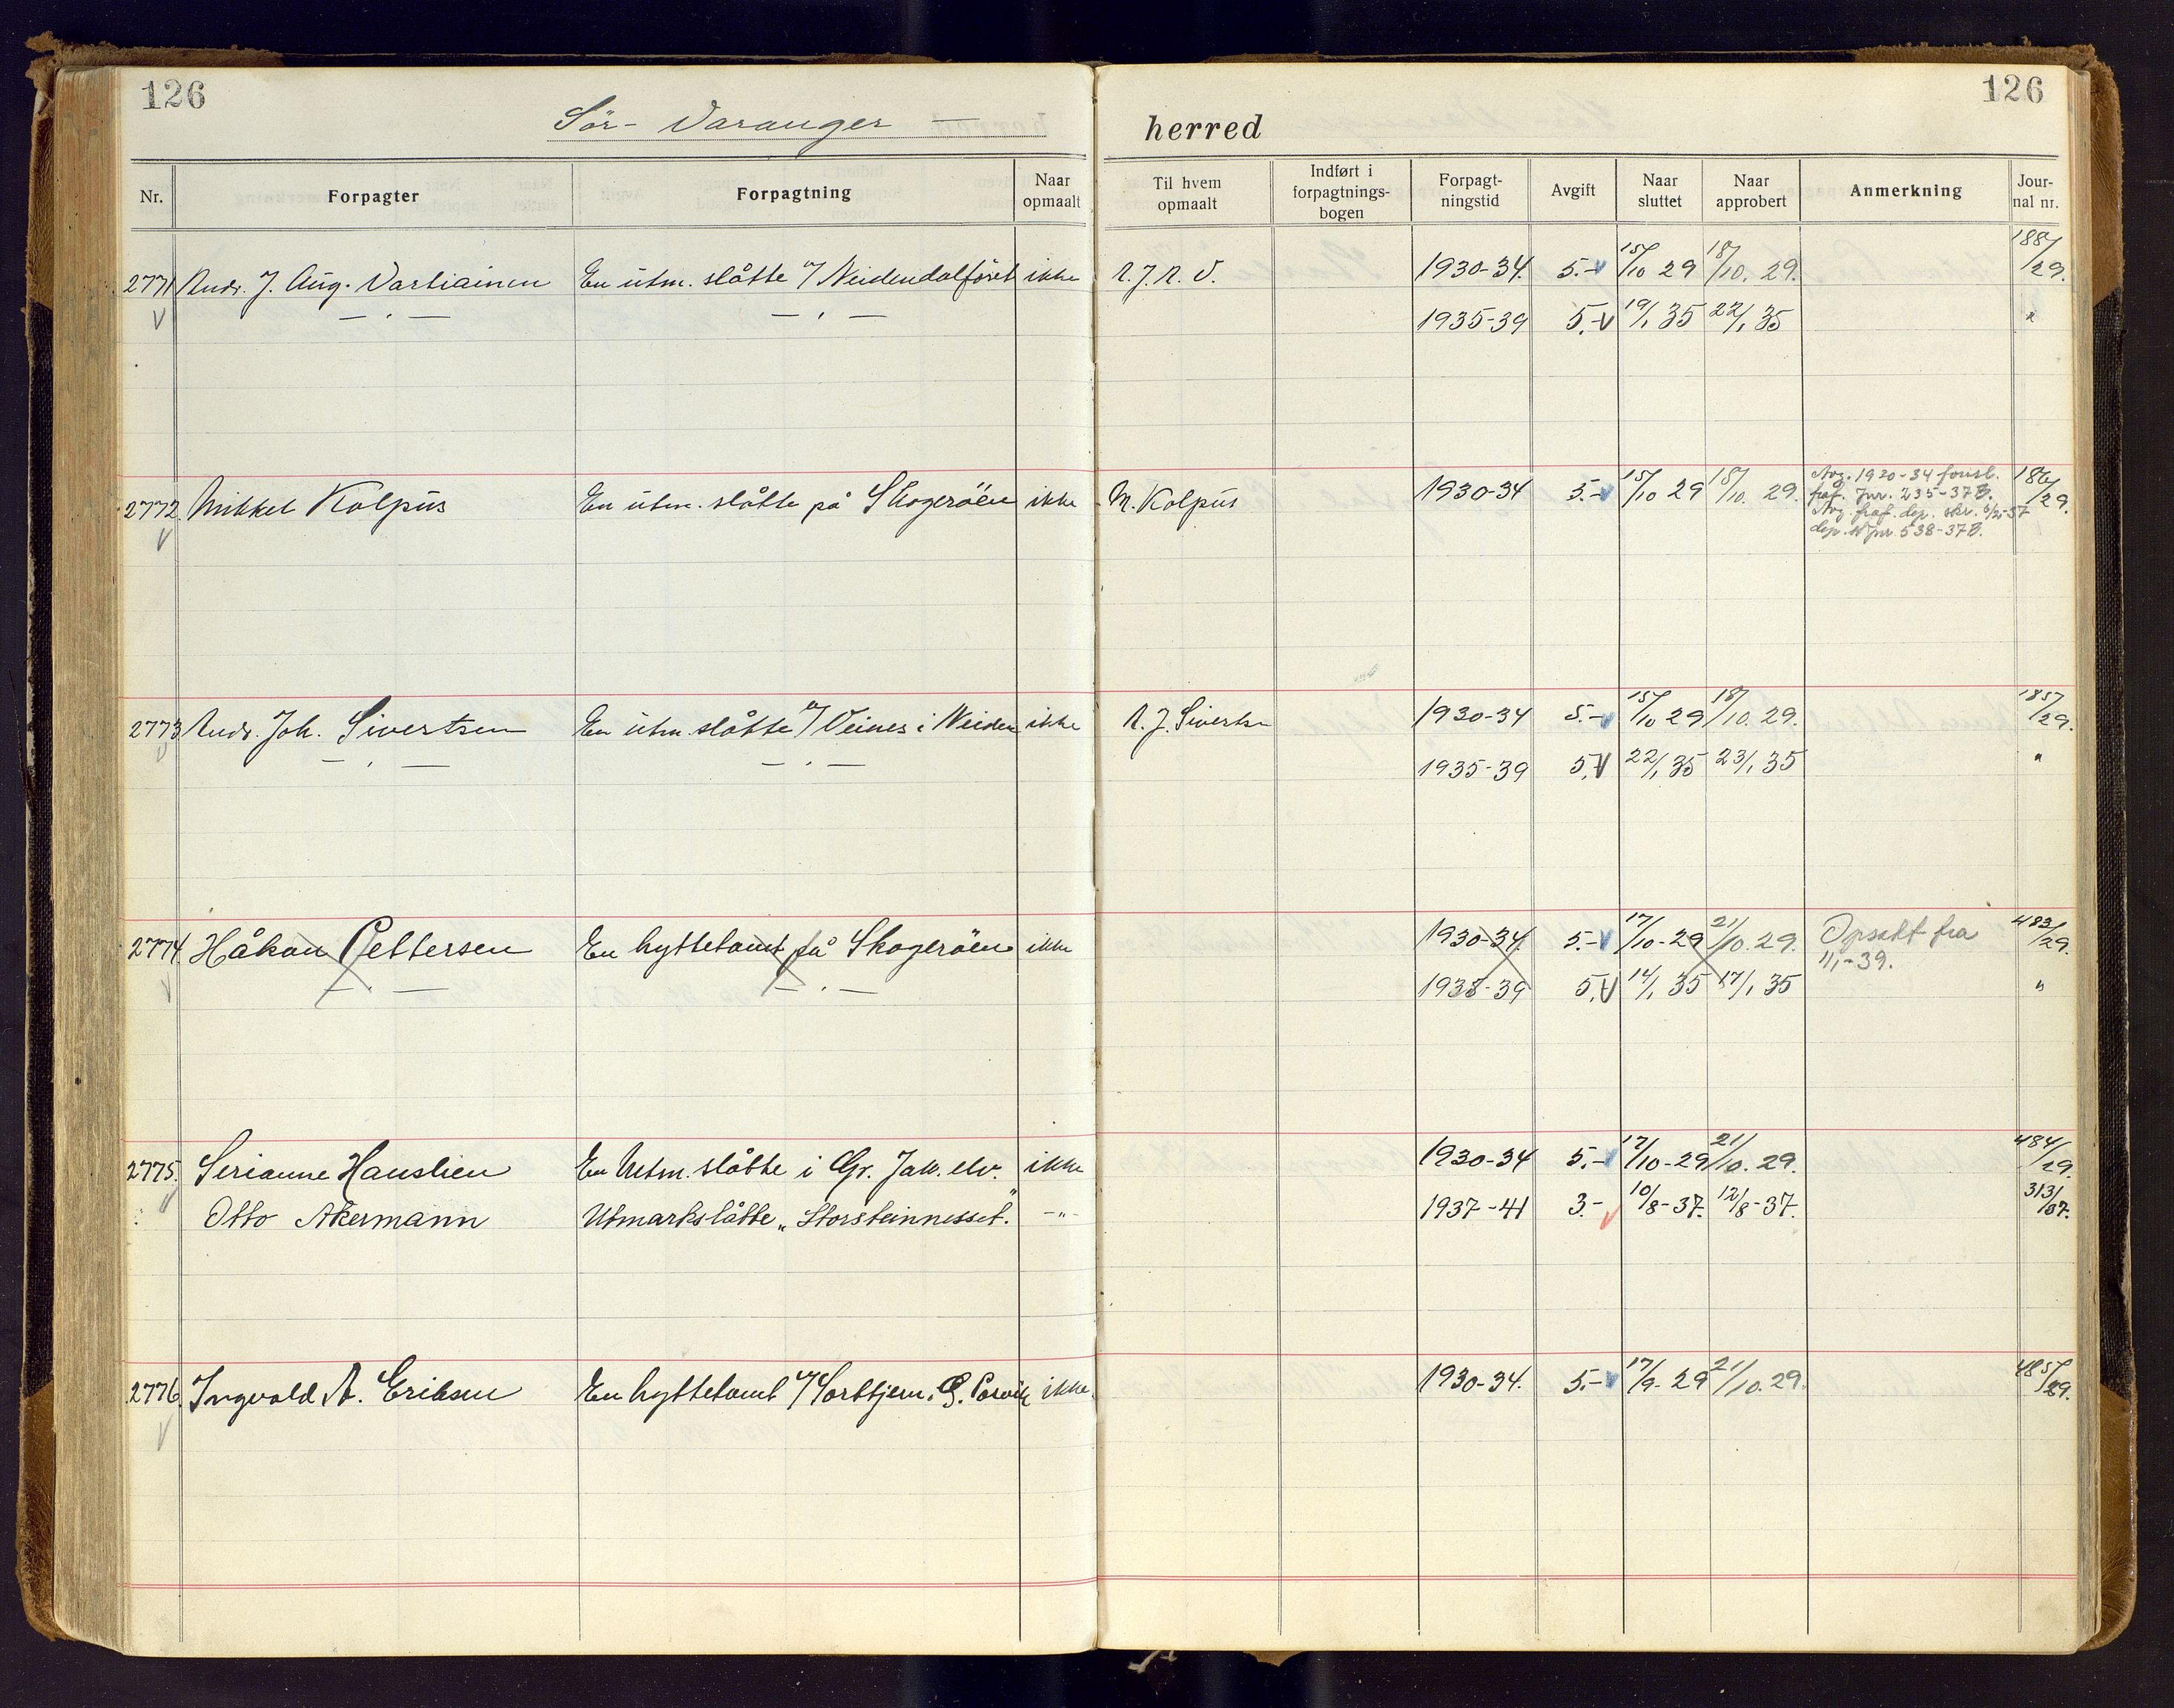 126
126
Sör- Varanger —
herred
Nr.
Forpagter
Forpagtning
Naar opmaalt
Til hvem opmaalt
Indført i forpagtnings-bogen
Forpagt-ningstid
Avgift
Naar sluttet
Naar approbert
Anmerkning
Jour-nal nr.
2771 Andr. J. Aug. Vartiainen En utm. slåtte v/ Neidendalföret ikke A. J. A. V. 1930-34. 5.- 15/10 29 18/10. 29. 188/29.
— . — — . — 1935-39 5.- 19/1 35 22/1 35 "
2772. Mikkel Kolpus En utm. slåtte på Skogeröen ikke M. Kolpus 1930-34 5.- 15/10 29 18/10. 29. 186/29.
Avg. 1930-34
fraf. Jnr. 235-37B.
Avg. fraf. dep. skr.
dep. Jnr. 538-37B.
2773 Andr. Joh. Sivertsen En utm. slåtte v/ Veines i Neiden ikke A. J. Sivertsen 1930-34 5.- 15/10 29 18/10. 29. 185/29.
— . — — . — 1935-39 5.- 22/1 35 23/1 35 "
2774. Håkon Pettersen En hyttetomt på Skogeröen ikke 1930-34. 5.- 17/10-29 21/10. 29. Opsakt fra 483/29.
— . — — . — 1935-39 5.- 14/1 35 17/1 35 1/1-39. "
2775. Serianne Hauslien En Utm. slåtte i Gr. Jak. elv. ikke 1930-34 5.- 17/10-29 21/10. 29. 484/29.
Otto Akermann Utmarkslåtte „Storsteinnesset." -"- 1937-41 3.- 10/8-37. 12/8-37. 313/37.
2776. Ingvald A. Eriksen En hyttetomt v/ ikke. 1930-34. 5.- 17/9-29 21/10. 29. 485/29.